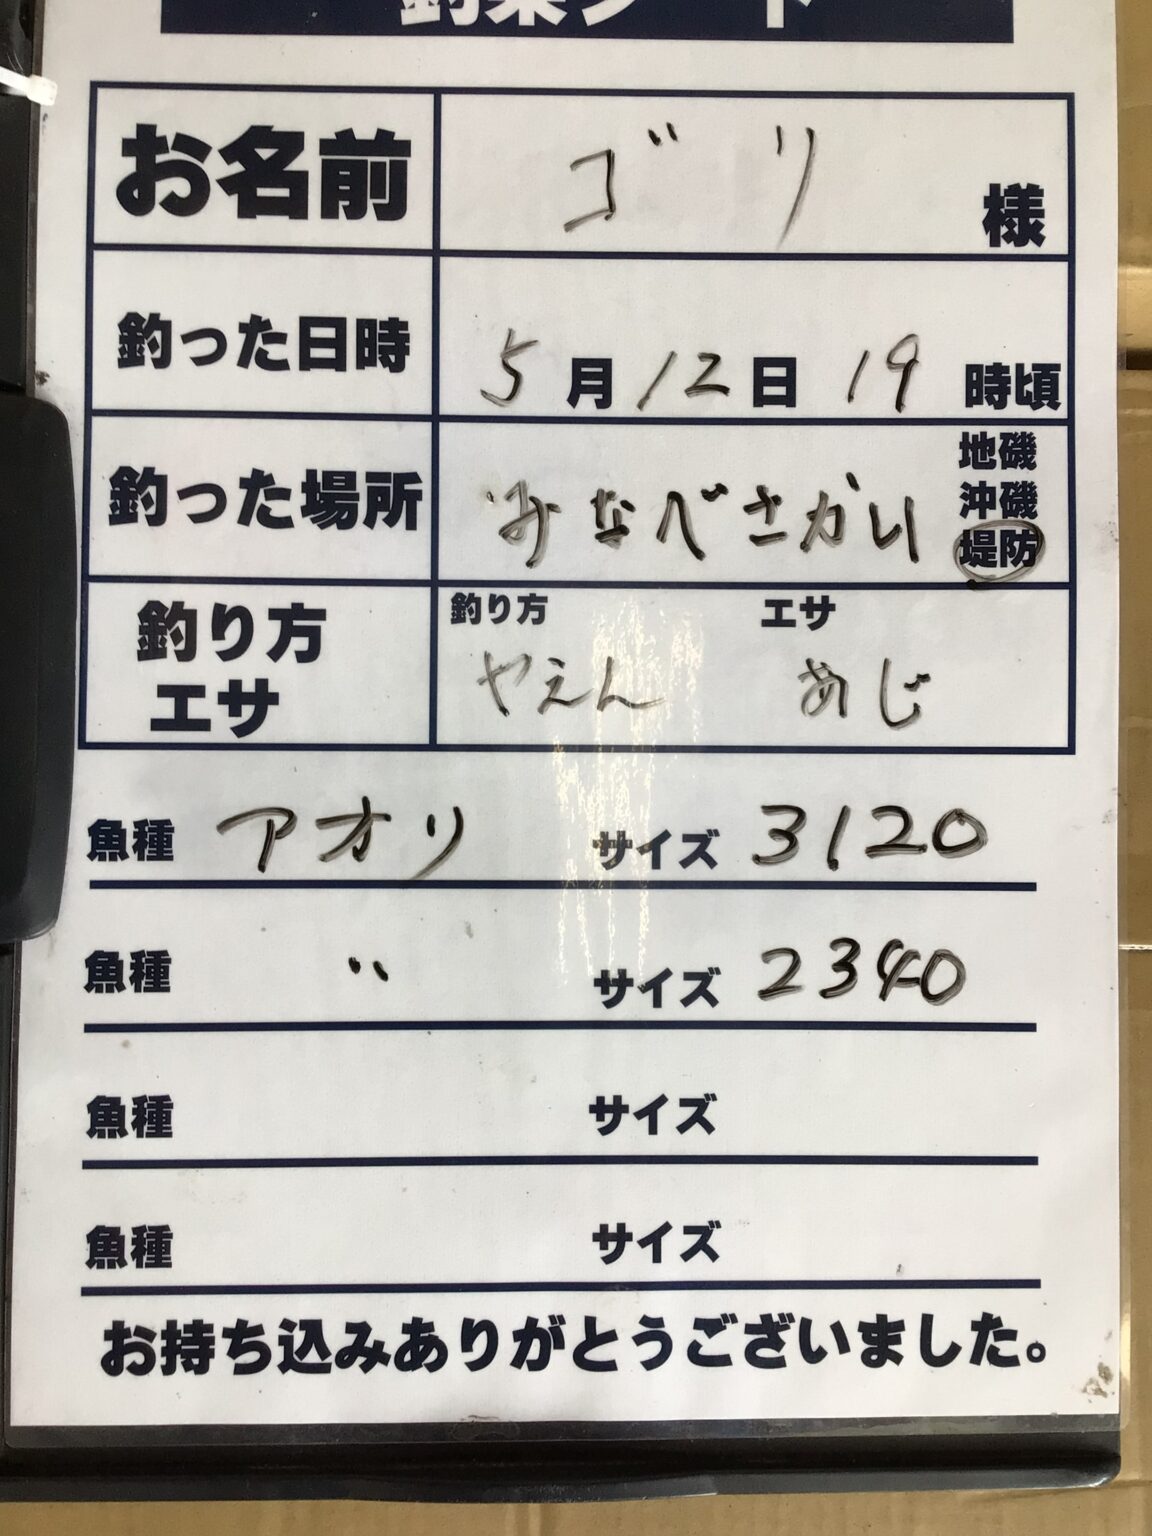 釣果シート
お名前 ゴリ 様
釣った日時 5月12日19時頃
釣った場所 みなべさかい 地磯 沖磯 堤防
釣り方 エサ
釣り方 エサ
やえん あじ
魚種 アオリ サイズ 3120
魚種 〃 サイズ 2340
魚種 サイズ
魚種 サイズ
お持ち込みありがとうございました。